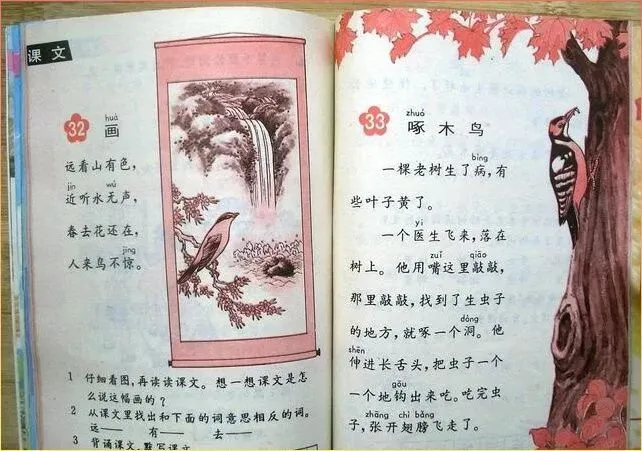 课文
huà
32 画
远看山有色，
jìn wú
近听水无声，
春去花还在，
jīng
人来鸟不惊。
1 仔细看图，再读读课文。想一想课文是怎
么说这幅画的？
2 从课文里找出和下面的词意思相反的词。
远—— 有—— 去——
3 背诵课文，默写课文
zhuó
33 啄木鸟
bìng
一棵老树生了病，有
些叶子黄了。
yī
一个医生飞来，落在
zuǐ qiāo
树上。他用嘴这里敲敲，
那里敲敲，找到了生虫子
dòng
的地方，就啄一个洞。他
shēn
伸进长舌头，把虫子一个
gōu
一个地钩出来吃。吃完虫
zhāng chì bǎng
子，张开翅膀飞走了。